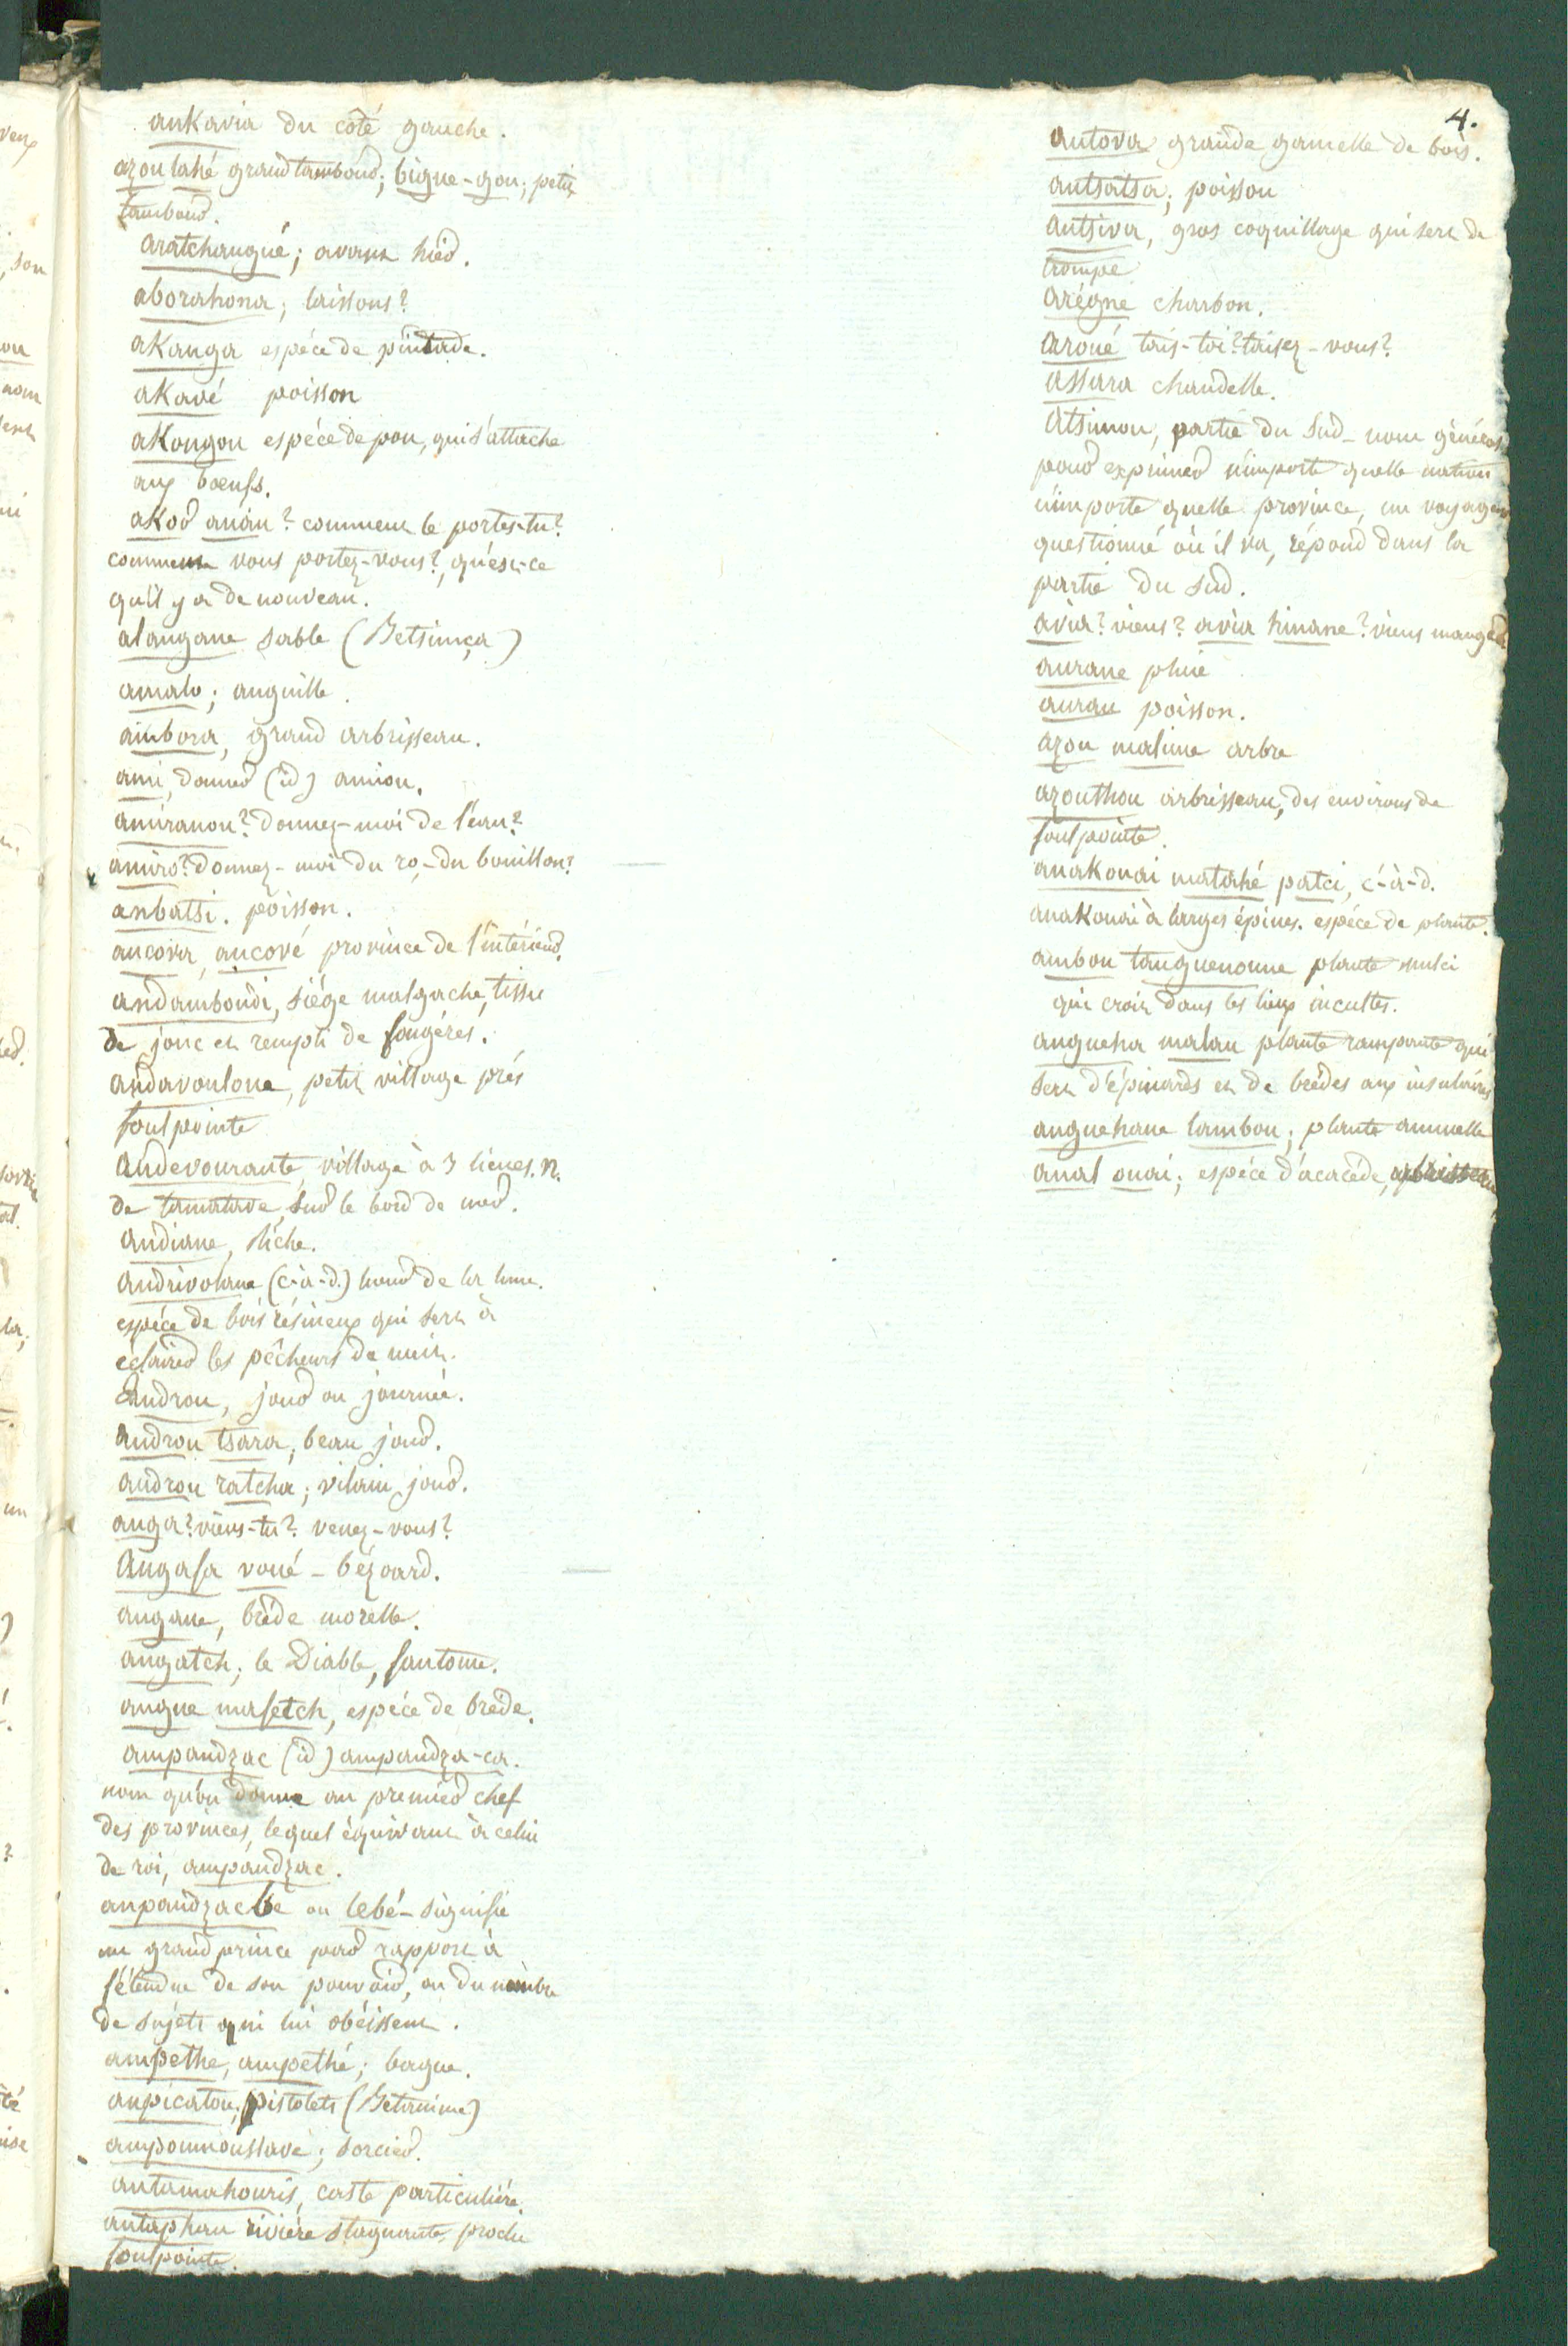 ankavia du côté gauche.
azou lahé grand tambour; bigne-gou; petit
tambour.
aratchangué; avant hier.
aborahona; laissons?
akanga espéce de pintade.
akavé poisson
akongou espéce de pou, qui s'attache
aux bœufs.
akor anáu? comment te portes-tu?
comment vous portez-vous?, qu'est-ce
qu'il y a de nouveau.
alangane sable (Betsimça)
amalo; anguille.
ambora, grand arbrisseau.
ami, donner (id) amiou.
amiranou? donnez-moi de l'eau?
amiro? donnez-moi du ro,-du bouillon?
anbatsi. poisson.
ancova, ancové province de l'intérieur.
andamboudi, siége malgache, tissu
de jonc et rempli de fougéres.
andavoulone, petit village prés
foulpointe
andevourante, village à 3 lieues. n.
de tamatave, sur le bord de mer.
andiane, liche.
andrivolana (c-à-d.) lueur de la lune.
espéce de bois résineux qui sert à
éclairer les pêcheurs de nuit.
androu, jour ou journée.
androu tsara, beau jour.
androu ratcha; vilain jour.
anga? viens-tu? venez-vous?
angafa voué - bézoard.
angane, bréde morelle.
angatch; le Diable, fantome.
angue mafetch, espéce de bréde.
ampandzac (id) ampandza-ca.
nom qu'on donne au premier chef
des provinces, lequel équivaut à celui
de roi, ampandzac.
anpandzacbe ou lebé- signifie
un grand prince par rapport à
l'étendue de son pouvoir, ou du nombre
de sujets qui lui obéissent.
ampethe, ampethé; bague.
anpicatou; pistolets (Betanime)
ampoumoussavé; sorcier.
antamahouris, caste particuliére.
antaphan riviére stagnante, proche
foulpointe.
4.
antova grande gamelle de bois.
antsatsa; poisson
antsiva, gros coquillage qui sert de
trompe
arégne charbon.
aroué tais-toi? taisez-vous?
assara chandelle.
atsimou, partie du sud- nom général
pour exprimer n'importe quelle nation
n'importe quelle province, un voyageur
questionné où il va, répond dans la
partie du sud.
avia? viens? avia hinane? viens manger.
aurane pluie
aurau poisson.
azou malime arbre
azouthou arbrisseau, des environs de
foulpointe.
anakouai matahé patci, c-à-d.
anakouai à larges épines. espéce de plante.
ambou tanguenoune plante
qui croit dans les lieux incultes.
angueha malau plante rampante qui
sert d'épinards et de brédes aux insulaires
anguehane lambou; plante annuelle
anal ouai; espéce d'acacéde,